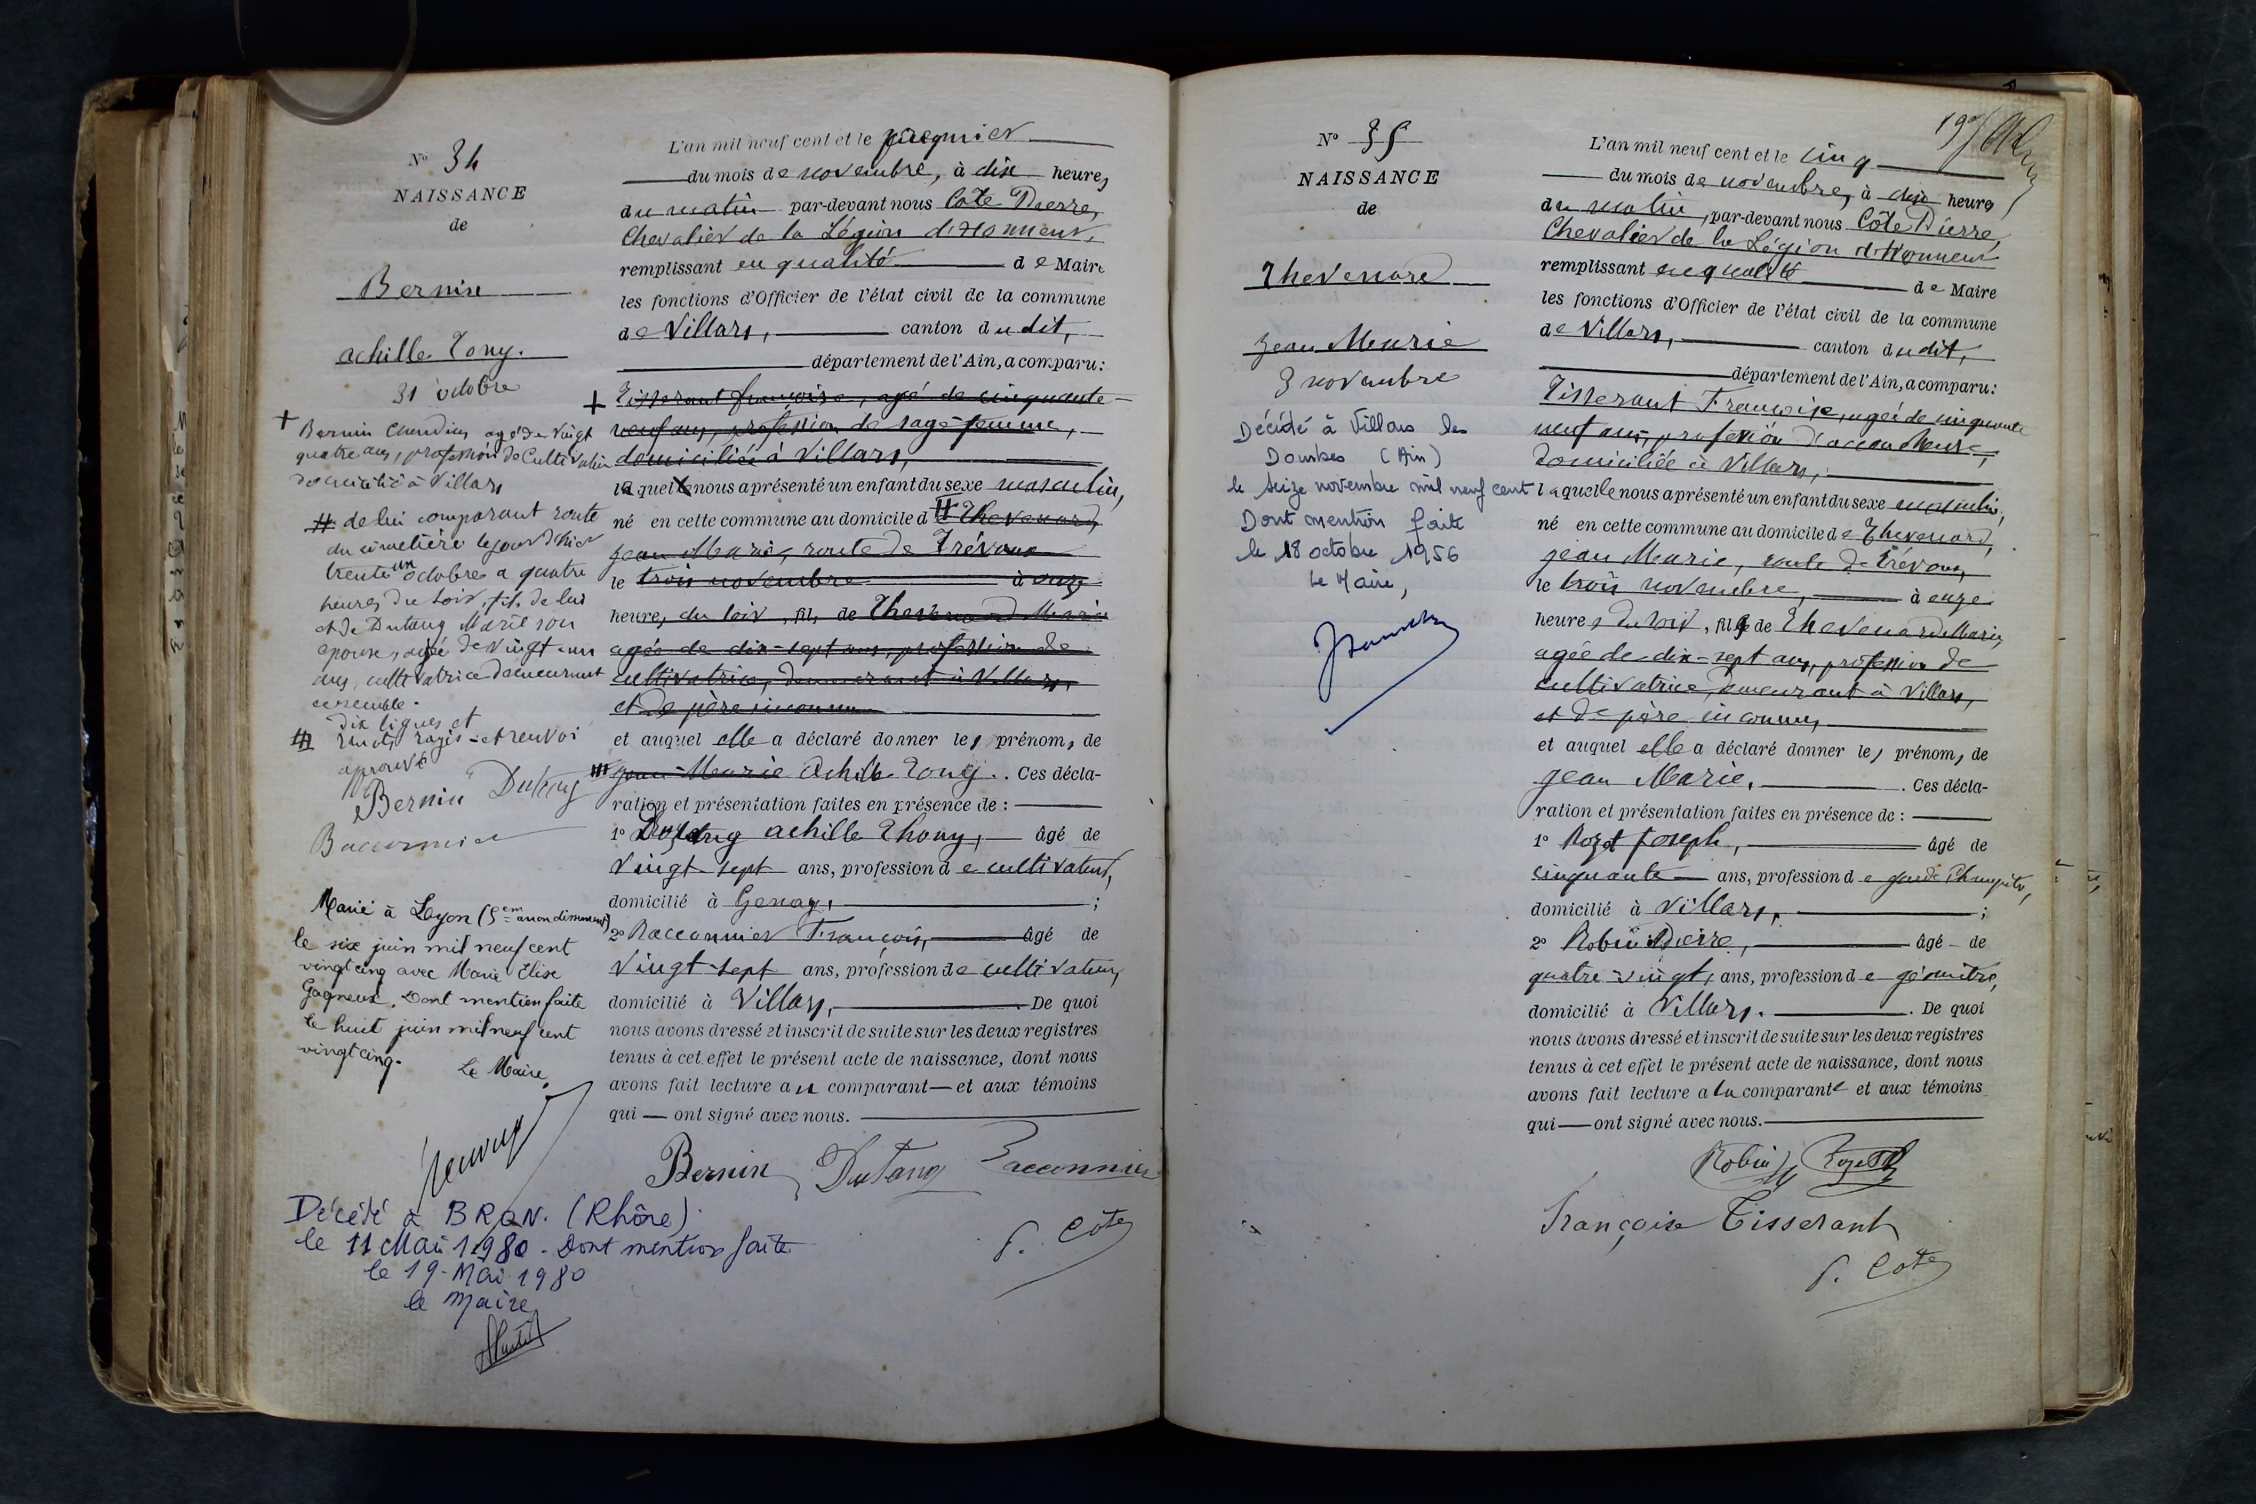 N° 34
NAISSANCE
de
Bernin
achille Tony.
31 octobre
+ Bernin Claudius agé de vingt
quatre ans, profession de Cultivateur
domicilié à Villars
# de lui comparant route
du cimetière le jour d'hier
trente un octobre a quatre
heures du soir, fils de lui
et de Dutang Marie son
epouse, agée de vingt-un
ans, cultivatrice demeurant
ensemble.
dix lignes et
mots rayés et renvoi
aprouvé
Bernin Dutang
Racconnier
Marié à Lyon (5em arrondissement)
le six juin mil neuf cent
vingt cinq avec Marie Elise
Gagneux. Dont mention faite
le huit juin mil neuf cent
vingt cinq.
Le Maire,
Décédé à BRON. (Rhône)
le 11 Mai 1980. Dont mention faite
le 19 Mai 1980
le Maire
L'an mil neuf cent et le premier
du mois de novembre, à dix heures
du matin par-devant nous Côte Pierre,
Chevalier de la Légion d'Honneur,
remplissant en qualité de Maire
les fonctions d'Officier de l'état civil de la commune
de Villars, canton dudit,
département de l'Ain, a comparu:
+ Tisserant françoise, agée de cinquante
neuf ans, profession de sage-femme,
domiciliée à Villars,
laquelle nous a présenté un enfant du sexe masculin,
né en cette commune au domicile de # Thevenard
jean Marie, route de Trévoux
le trois novembre à onze
heures, du soir, fils de Thevenard Marie
agée de dix-sept ans, profession de
cultivatrice, demeurant à Villars,
et de père inconnu
et auquel elle a déclaré donner les prénoms de
jean-Marie Achille Tony. Ces décla-
ration et présentation faites en présence de :
1° Dutang achille Thony, âgé de
vingt-sept ans, profession de cultivateur,
domicilié à Genay, ;
2° Racconnier François, âgé de
vingt-sept ans, profession de cultivateur,
domicilié à Villars, De quoi
nous avons dressé et inscrit de suite sur les deux registres
tenus à cet effet le présent acte de naissance, dont nous
avons fait lecture au comparant et aux témoins
qui ont signé avec nous.
Bernin Dutang Racconnier
P. Côte
N° 35
NAISSANCE
de
Thevenard
Jean Marie
3 novembre
Décédé à Villars les
Dombes (Ain)
le seize novembre mil neuf cent
Dont mention faite
le 18 octobre 1956
Le Maire,
197
L'an mil neuf cent et le cinq
du mois de novembre, à dix heures
du matin, par-devant nous Côte Pierre,
Chevalier de la Légion d'Honneur
remplissant en qualité de Maire
les fonctions d'Officier de l'état civil de la commune
de Villars, canton dudit,
département de l'Ain, a comparu:
Tisserant Françoise, agée de cinquante
neuf ans, profession d'accoucheuse,
domiciliée à Villars,
laquelle nous a présenté un enfant du sexe masculin,
né en cette commune au domicile de Thevenard,
jean Marie, route de Trévoux,
le trois novembre, à onze
heures du soir, fils de Thevenard Marie,
agée de dix-sept ans, profession de
cultivatrice, demeurant à Villars,
et de père inconnu,
et auquel elle a déclaré donner les prénoms de
jean Marie. Ces décla-
ration et présentation faites en présence de :
1° Rozet Joseph, âgé de
cinquante ans, profession de garde Champêtre,
domicilié à Villars, ;
2° Robin Pierre, âgé de
quatre-vingt, ans, profession de géomètre,
domicilié à Villars. De quoi
nous avons dressé et inscrit de suite sur les deux registres
tenus à cet effet le présent acte de naissance, dont nous
avons fait lecture a la comparante et aux témoins
qui ont signé avec nous.
Robin Rozet
Françoise Tisserant
P. Côte